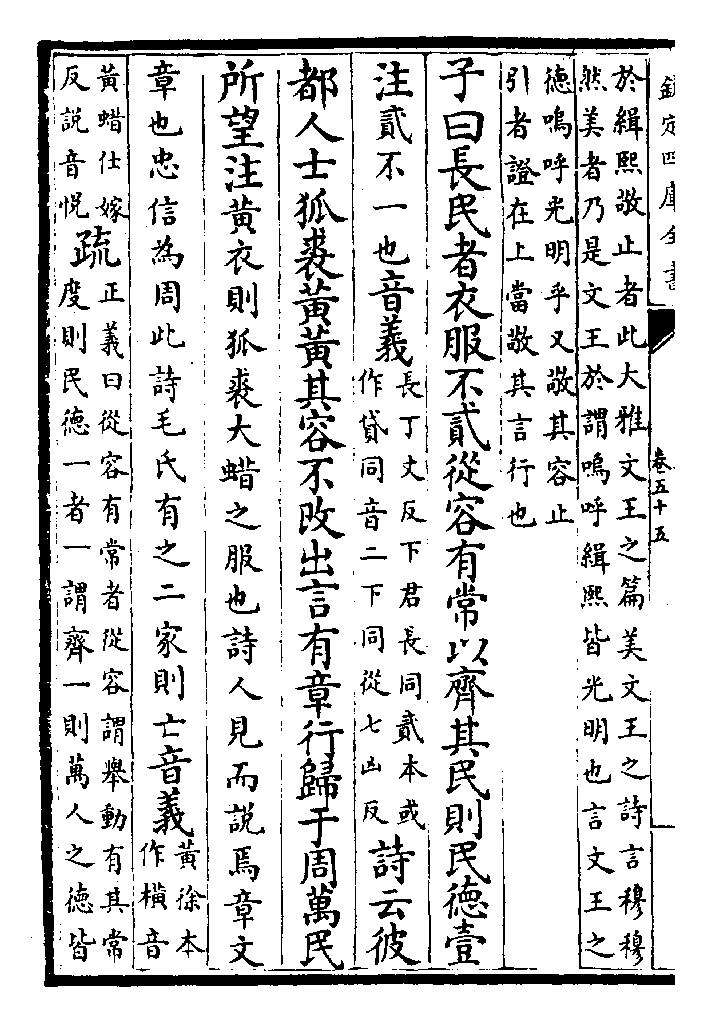 欽定四庫全書
卷五十五
於緝熙敬止者此大雅文王之篇美文王之詩言穆穆
然美者乃是文王於謂嗚呼緝熙皆光明也言文王之
德嗚呼光明乎又敬其容止
引者證在上當敬其言行也
子曰長民者衣服不貳從容有常以齊其民則民德壹
注貳不一也音義
長丁丈反下君長同貳本或
作貸同音二下同從七凶反
詩云彼
都人士狐裘黃黃其容不改出言有章行歸于周萬民
所望注黃衣則狐裘大蜡之服也詩人見而說焉章文
章也忠信為周此詩毛氏有之二家則亡音義
黃徐本
作橫音
黃蜡仕嫁
反說音悅
疏
正義曰從容有常者從容謂舉動有其常
度則民德一者一謂齊一則萬人之德皆